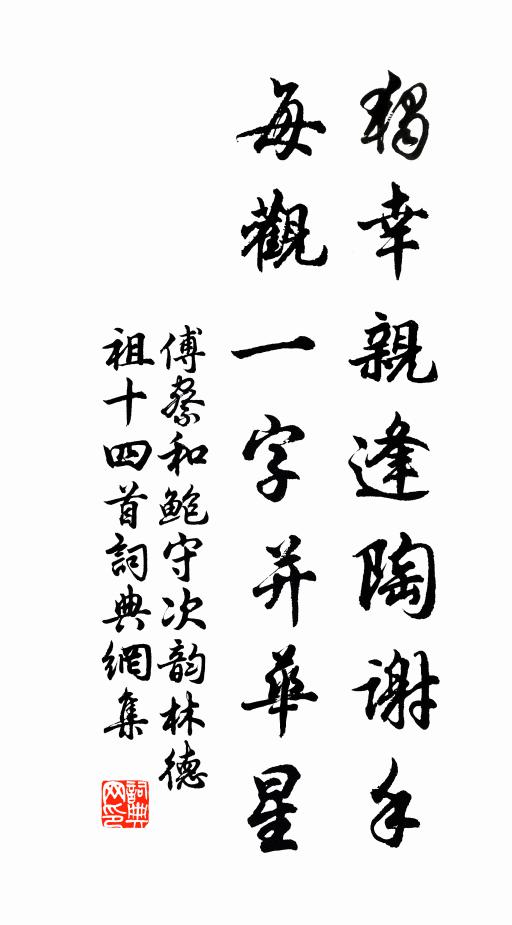 獨幸親逢陶謝手
每觀一字并華星
傅察和鮑守次韵林德
祖十四首詞典網集
詞典网印